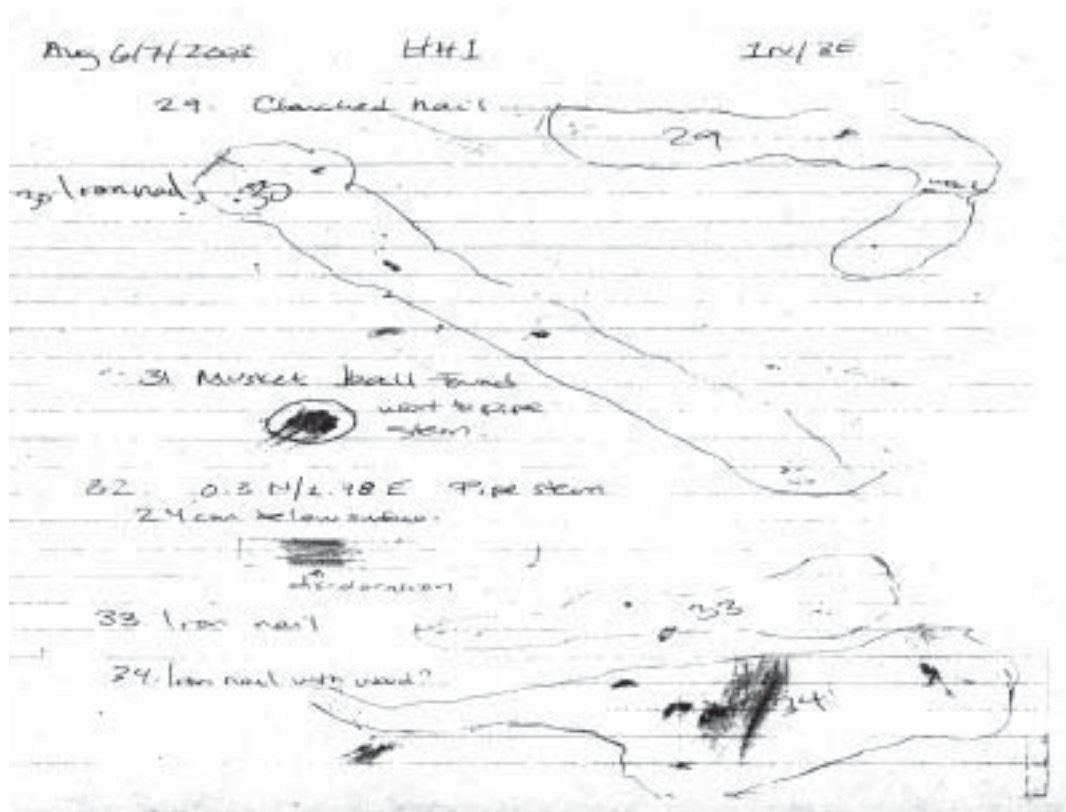 Aug 6/7/2005 HHI 1N/3E
29. Clenched nail
29
30 Iron nail
30
31 Musket ball found
next to pipe
stem.
32. 0.3 N/2.98 E Pipe stem
24 cm below surface.
discoloration
33 Iron nail
33
34. Iron nail with wood?
34